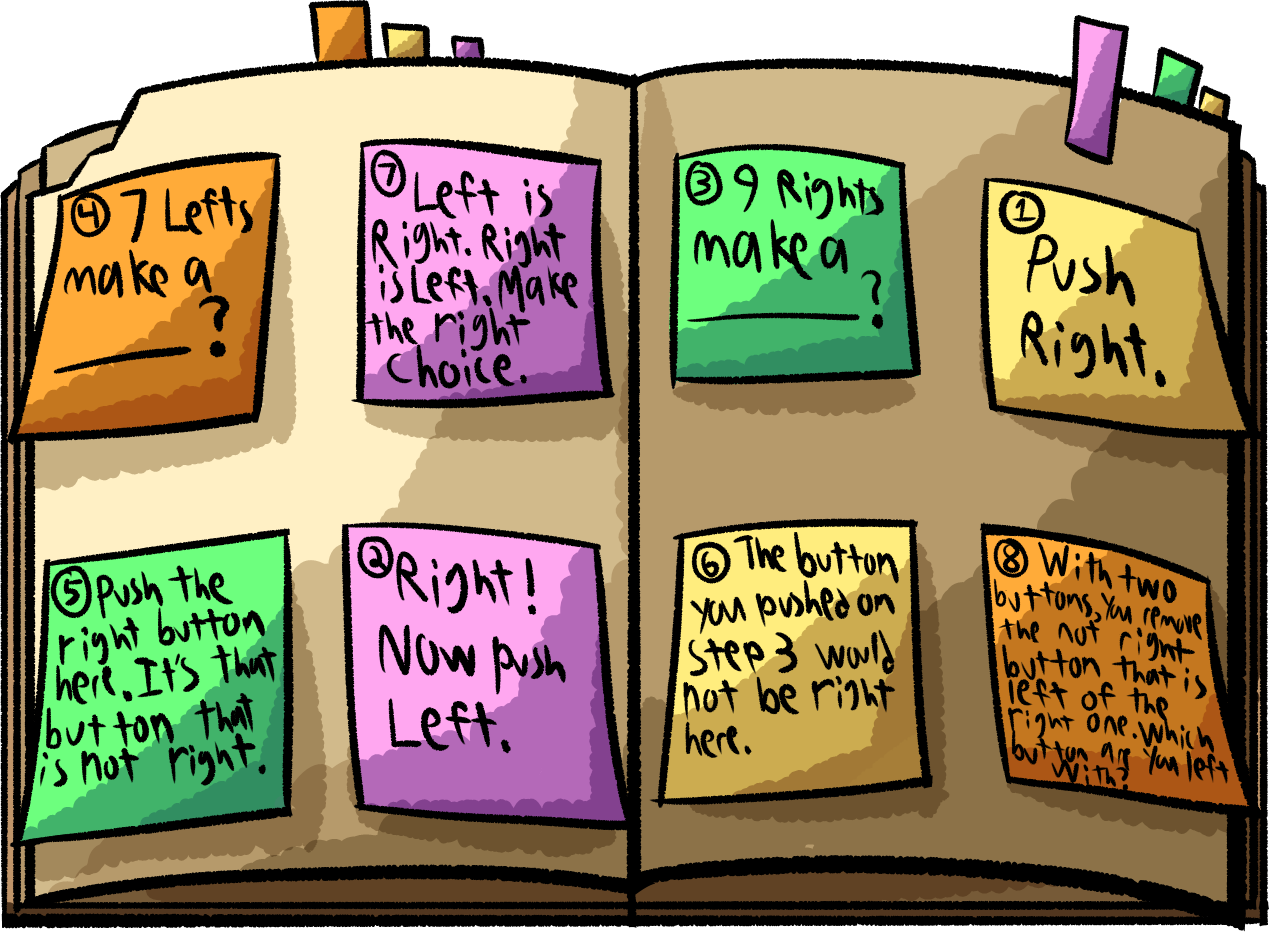 ④ 7 Lefts
make a
____?
⑦ Left is
Right. Right
is Left. Make
the right
choice.
③ 9 Rights
make a
____?
①
Push
Right.
⑤ Push the
right button
here. It's that
button that
is not right.
② Right!
Now push
Left.
⑥ The button
you pushed on
step 3 would
not be right
here.
⑧ With two
buttons, you remove
the not right
button that is
left of the
right one. Which
button are you left
with?